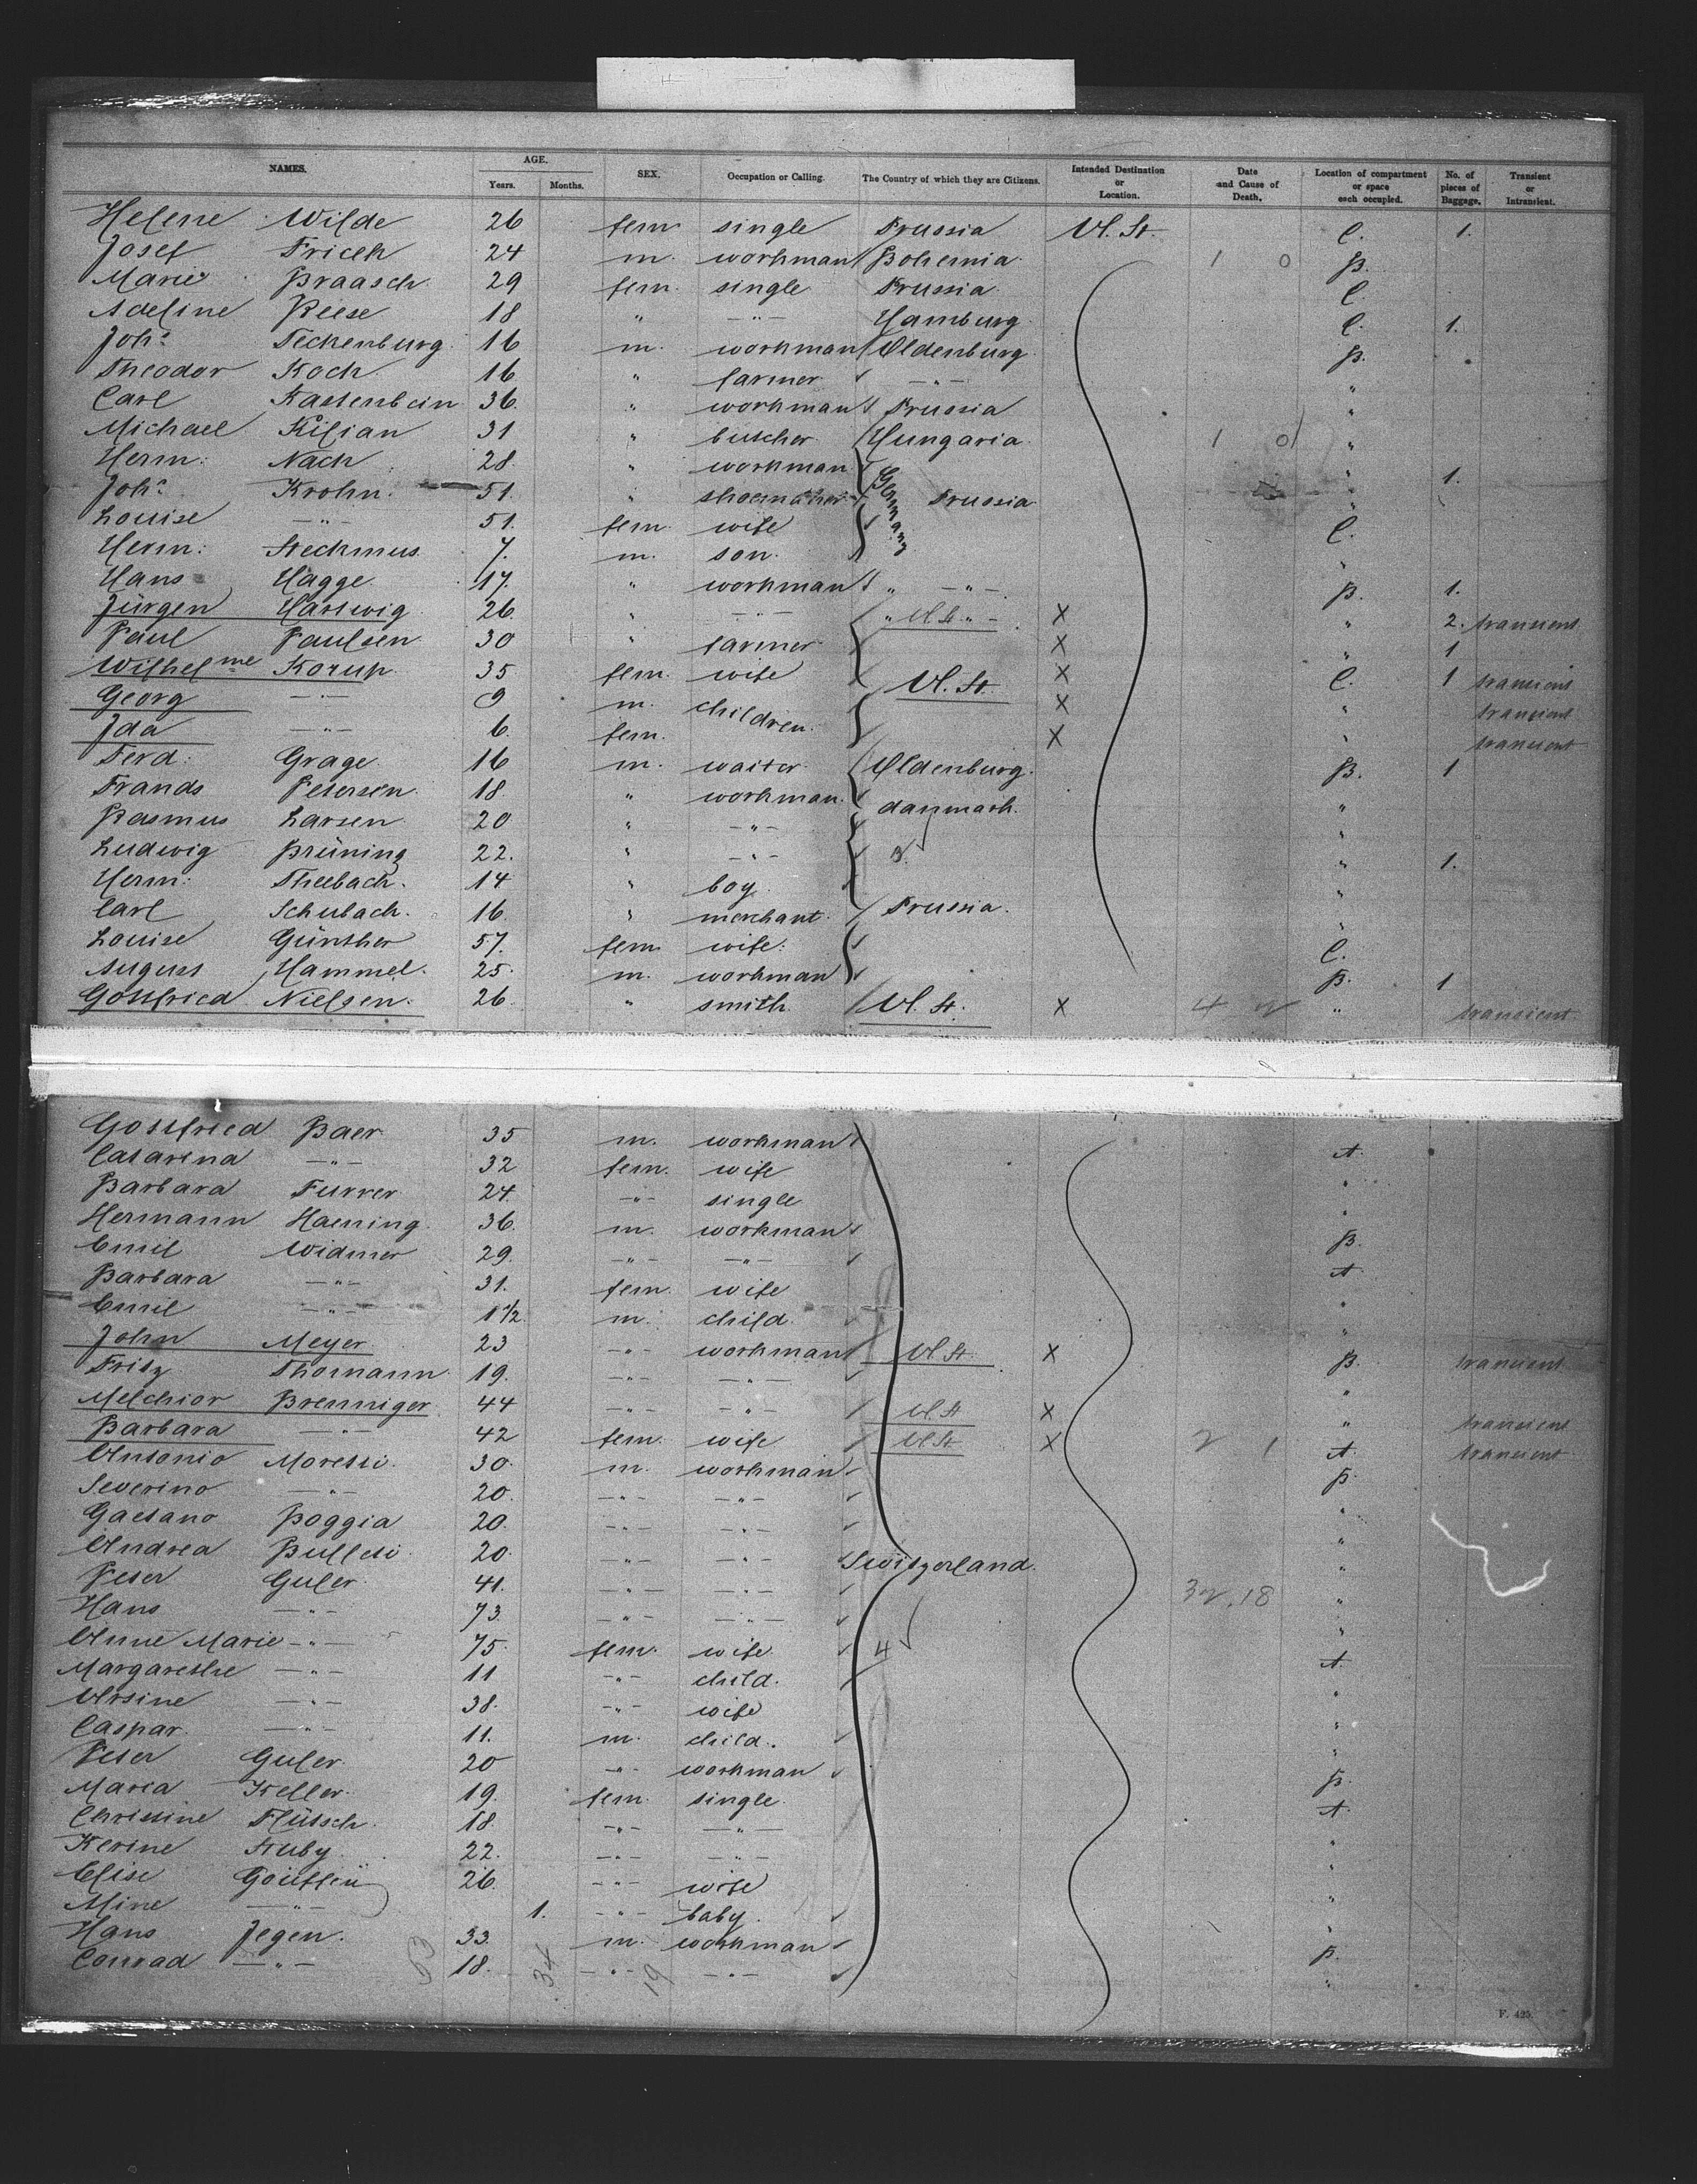 NAMES. AGE. SEX. Occupation or Calling. The Country of which they are Citizens. Intended Destination or Location. Date and Cause of Death. Location of compartment or space each occupied. No. of pieces of Baggage. Transient or Intransient.
Years. Months.
Helene Wilde 26 fem single Prussia U. St. C. 1.
Josef 24 m. workman Bohemia 1 0 B.
Marie Braasch 29 fem. single Prussia C.
Adeline Reese 18 " —"— Hamburg C. 1.
Johs Teckenburg 16 m. workman Oldenburg B.
Theodor Koch 16 " farmer —"— "
Carl Kastenbein 36. " workman Prussia "
Michael Kilian 31 " butcher Hungaria 1 0 "
Herm: Nach 28. " workman " 1.
Johs Krohn. 51. " shoemaker Germany Prussia "
Louise —"— 51. fem. wife C.
Herm: Steckmus 7. m. son. "
Hans Hagge 17. " workman " —"— B. 1.
Jürgen Hartwig 26. " —"— " U. St. " — X " 2. transient
Paul Paulsen 30 " farmer X " 1
Wilhelme Korup 35 fem. wife U. St. X C. 1 transient
Georg —"— 9 m. children X " transient
Ida —"— 6. fem. X " transient
Ferd. Grage 16 m. waiter Oldenburg. B. 1
Frands Petersen 18. " workman. danmark. "
Rasmus Larsen 20 " —"— "
Ludwig Brüning 22. " —"— 3. " 1.
Herm: Theebach. 14 " boy "
Carl Schubach. 16. " merchant Prussia. "
Louise Günther 57. fem wife. C.
August Hammel. 25. m. workman B. 1
Gottfried Nielsen. 26. " smith U. St. X 4 " transient.
Gottfried Baer 35 m. workman A.
Catarina —"— 32 fem. wife "
Barbara Furrer 24. —"— single "
Hermann Haening. 36. m. workman B.
Emil Widmer 29. —"— —"— A
Barbara —"— 31. fem. wife "
Emil —"— 1 1/2 m. child. "
John Meyer 23 —"— workman U. St. X B. transient
Fritz Thomann 19. —"— —"— "
Melchior Brenniger 44 —"— —"— U. St X " transient
Barbara —"— 42 fem. wife U. St. X 2 1 A. transient
Antonio Moretti. 30. m. workman B.
Severino —"— 20. —"— —"— "
Gaetano Poggia 20. —"— —"— "
Andrea 20. —"— —"— Switzerland. "
Peter Guler 41. —"— —"— 32. 18 "
Hans —"— 73. —"— —"— "
Anne Marie —"— 75. fem. wife 4 A.
Margarethe —"— 11 —"— child. "
Ursine —"— 38. —"— wife "
Caspar. —"— 11. m. child. "
Peter Guler 20 —"— workman B.
Maria Keller. 19. fem. single A.
Christine Flütsch. 18. —"— —"— "
Kerine Stuby 22. —"— —"— "
Elise 26. —"— wife "
Mine —"— 1. —"— baby. "
Hans Jegen. 33. m. workman B.
Conrad —"— 18. —"— —"— "
34 19
F. 425.